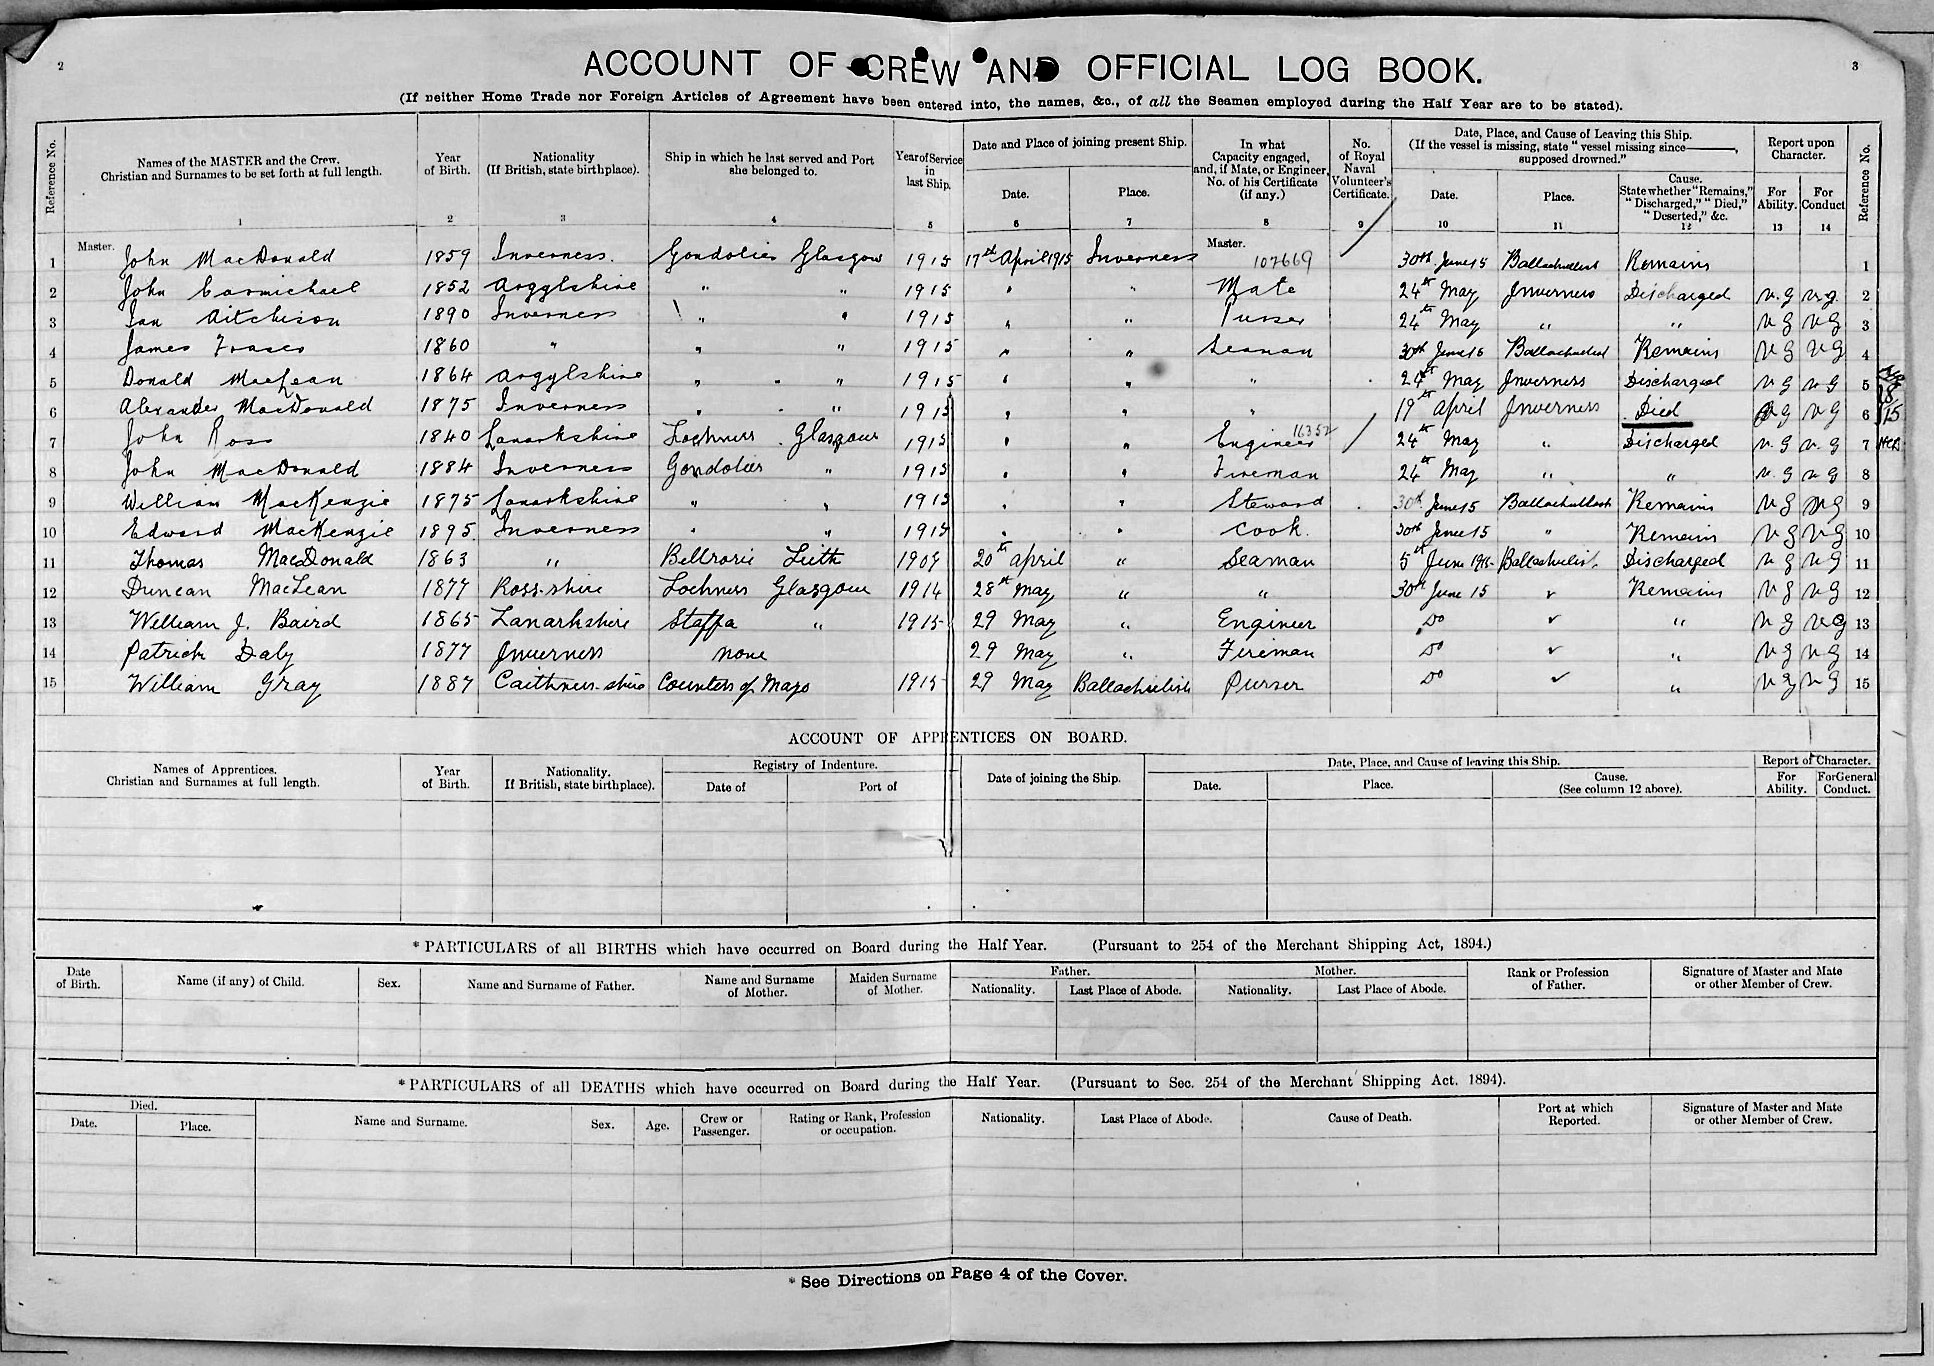 2
3
ACCOUNT OF CREW AND OFFICIAL LOG BOOK.
(If neither Home Trade nor Foreign Articles of Agreement have been entered into, the names, &c., of all the Seamen employed during the Half Year are to be stated).
Reference No. Names of the MASTER and the Crew. Christian and Surnames to be set forth at full length. Year of Birth. Nationality (If British, state birthplace). Ship in which he last served and Port she belonged to. Year of Service in last Ship. Date and Place of joining present Ship. Date. Place. In what Capacity engaged, and, if Mate, or Engineer, No. of his Certificate (if any.) No. of Royal Naval Volunteer's Certificate. Date, Place, and Cause of Leaving this Ship. (If the vessel is missing, state "vessel missing since ———, supposed drowned." Date. Place. Cause. State whether "Remains," "Discharged," "Died," "Deserted," &c. Report upon Character. For Ability. For Conduct Reference No.
1 2 3 4 5 6 7 8 9 10 11 12 13 14
1 Master. John MacDonald 1859 Inverness. Gondolier Glasgow 1915 17th April 1915 Inverness Master. 107669 30th June 15 Ballachulish Remains 1
2 John Carmichael 1852 Argylshire " " 1915 " " Mate 24th May Inverness Discharged V.G V.G. 2
3 Ian Aitchison 1890 Inverness " " 1915 " " Purser 24th May " " V G V G 3
4 James Fraser 1860 " " " 1915 " " Seaman 30th June 15 Ballachulish Remains V G V G 4
5 Donald MacLean 1864 Argylshire " " 1915 " " " 24th May Inverness Discharged V G V G 5
6 Alexander MacDonald 1875 Inverness " " 1915 " " " 19th April Inverness Died V G V G 6 15
7 John Ross 1840 Lanarkshire Lochness Glasgow 1915 " " Engineer 16352 24th May " Discharged V. G V. G 7
8 John MacDonald 1884 Inverness Gondolier " 1915 " " Fireman 24th May " " V. G V G 8
9 William MacKenzie 1875 Lanarkshire " " 1915 " " Steward 30th June 15 Ballachulish Remains V G V G 9
10 Edward MacKenzie 1895 Inverness " " 1915 " " Cook. 30th June 15 " Remains V G V G 10
11 Thomas MacDonald 1863 " Bellrorie Leith 1909 20th April " Seaman 5th June 1915 Ballachulish Discharged V G V G 11
12 Duncan MacLean 1877 Ross-shire Lochness Glasgow 1914 28th May " " 30th June 15 " Remains V G V G 12
13 William J. Baird 1865 Lanarkshire Staffa " 1915 29 May " Engineer Do " " V G V G 13
14 Patrick Daly 1877 Inverness none 29 May " Fireman Do " " V G V G 14
15 William Gray 1887 Caithness-shire Countess of Mayo 1915 29 May Ballachulish Purser Do " " V G V G 15
ACCOUNT OF APPRENTICES ON BOARD.
Names of Apprentices. Christian and Surnames at full length. Year of Birth. Nationality. If British, state birthplace). Registry of Indenture. Date of Port of Date of joining the Ship. Date, Place, and Cause of leaving this Ship. Date. Place. Cause. (See column 12 above). Report of Character. For Ability. For General Conduct.
*PARTICULARS of all BIRTHS which have occurred on Board during the Half Year. (Pursuant to 254 of the Merchant Shipping Act, 1894.)
Date of Birth. Name (if any) of Child. Sex. Name and Surname of Father. Name and Surname of Mother. Maiden Surname of Mother. Father. Nationality. Last Place of Abode. Mother. Nationality. Last Place of Abode. Rank or Profession of Father. Signature of Master and Mate or other Member of Crew.
*PARTICULARS of all DEATHS which have occurred on Board during the Half Year. (Pursuant to Sec. 254 of the Merchant Shipping Act. 1894).
Died. Date. Place. Name and Surname. Sex. Age. Crew or Passenger. Rating or Rank, Profession or occupation. Nationality. Last Place of Abode. Cause of Death. Port at which Reported. Signature of Master and Mate or other Member of Crew.
* See Directions on Page 4 of the Cover.